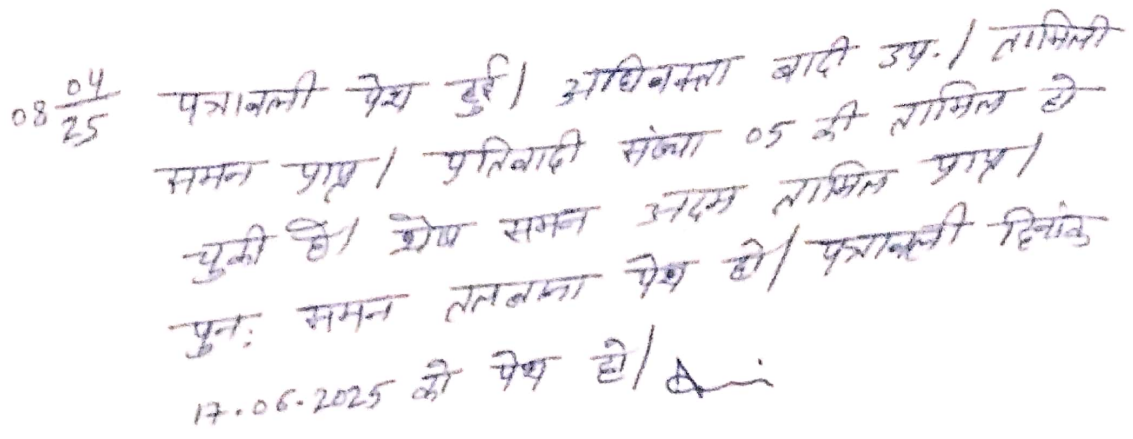 08 04/25 पत्रावली पेश हुई। अधिवक्ता वादी उप.। तामिली
समन प्राप्त। प्रतिवादी संख्या 05 की तामिल हो
चुकी है। शेष समन अदम तामिल प्राप्त।
पुनः समन तलवाना पेश हो। पत्रावली दिनांक
17.06.2025 को पेश हो।